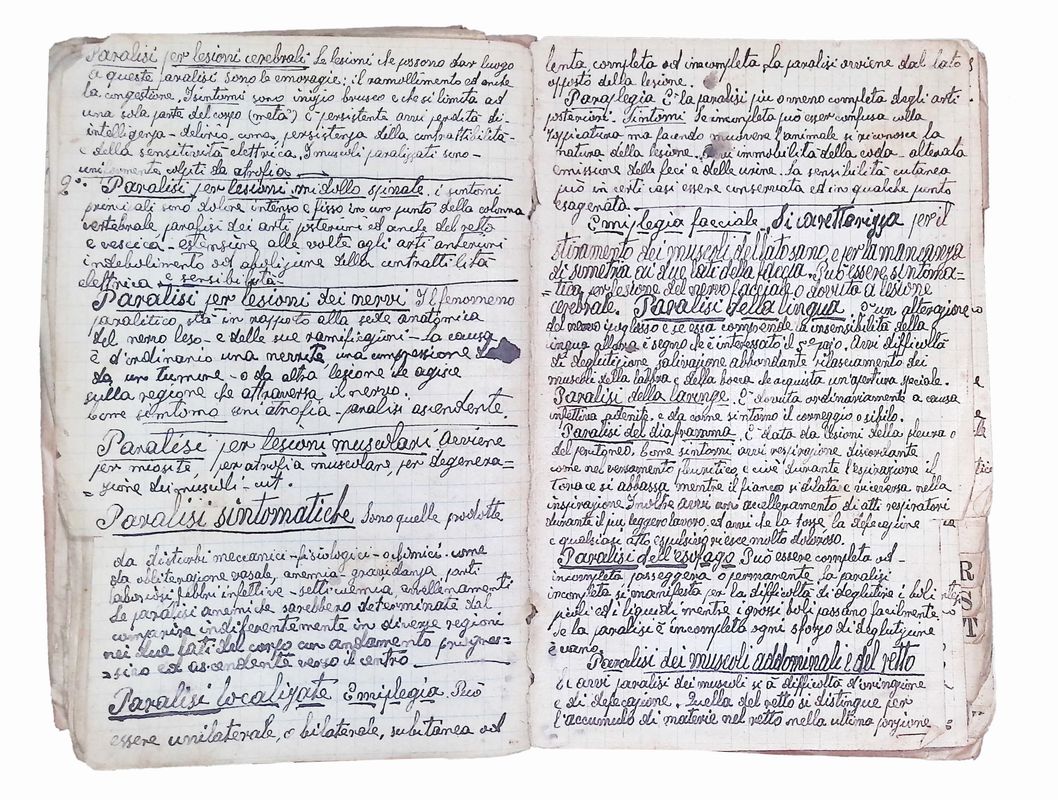 Paralisi per lesioni cerebrali Le lesioni che possono dar luogo
a queste paralisi sono le emoragie: il ramollimento ed anche
la congestione. I sintomi sono inizio brusco e che si limita ad
una sola parte del corpo (metà) è persistente avvi perdita di-
intelligenza - delirio, coma, persistenza della contrattibilità-
e della sensitività elettrica. I muscoli paralizzati sono-
colpiti da atrofia.
2°. Paralisi per lesioni midollo spinale. i sintomi
principali sono, dolore intenso e fisso in un punto della colonna
vertebrale paralisi dei arti posteriori ed anche del retto
e vescica - estensione alle volte agli arti anteriori
indebolimento od abolizione della contrattilità
elettrica e sensibilità
Paralisi per lesioni dei nervi Il fenomeno
paralitico sta in rapporto alla sede anatomica
del nervo leso - e delle sue ramificazioni - la causa
è d'ordinario una nevrite una compressione
da un tumore - o da altra lesione che agisce
sulla regione che attraversa il nervo.
Come sintomo avvi atrofia - paralisi ascendente.
Paralisi per lesioni muscolari Avviene
per miosite, per atrofia muscolare, per degenera=
=zione dei muscoli - cit.
Paralisi sintomatiche Sono quelle prodotte
da disturbi meccanici - fisiologici - o chimici. come
da obliterazione vasale, anemia - gravidanza parti
laboriosi febbri infettive - setticiemia avvelenamenti
Le paralisi anemiche sarebbero determinate dal
comparire indiferentemente in diverse regioni
nei due lati del corpo con andamento progres=
=sivo ed ascendente verso il centro
Paralisi localizzate Emiplegia. Può
essere unilaterale, o bilaterale, subitanea od
lenta completa od incompleta. La paralisi avviene dal lato
opposto della lesione.
Paraplegia È la paralisi piu o meno completa degli arti
posteriori. Sintomi Se incompleta può esser confusa colla
zoppicatura ma facendo muovere l'animale si riconosce la
natura della lesione. Avvi immobilità della coda - alterata
emissione delle feci e delle urine. La sensibilità cutanea
può in certi casi essere conservata ed in qualche punto
esagerata
Emiplegia facciale Si caratterizza per il
stiramento dei muscoli dell lato sano, e per la mancanza
di simetria ai due lati della faccia - Può essere sintoma=
=tica per lesione del nervo facciale o dovuta a lesione
cerebrale. Paralisi della lingua È un alterazione
del nervo ipoglosso e se essa comprende la insensibilità della
lingua allora è segno che è interessato il 5° pajo. Avvi difficoltà
di deglutizione, salivazione abbondante rilasciamento dei
muscoli della labbra e della bocca che acquista un'apertura speciale.
Paralisi della laringe. È dovuta ordinariamente a causa
infettiva, adenite, e da come sintomo il corneggio o sibilo.
Paralisi del diaframma. È data da lesioni della pleura o
del peritoneo. Come sintomi avvi respirazione discordante
come nel versamento pleuritico, e cioè durante l'espirazione il
torace si abbassa mentre il fianco si dilata e viceversa nella
inspirazione. Inoltre avvi un accelleramento di atti respiratori
durante il piu leggero lavoro, ed avvi de la tosse la defecazione
e qualsiasi atto espulsivo riesce molto doloroso.
Paralisi dell'esofago Può essere completa od
incompleta passeggera o permanente la paralisi
incompleta si manifesta per la difficoltà di deglutire i boli
picoli ed i liquidi mentre i grossi boli passano facilmente.
Se la paralisi è incompleta ogni sforzo di deglutizione
è vano.
Paralisi dei muscoli addominali e del retto
Si avvi paralisi dei muscoli si à difficoltà d'orinazione
e di defecazione. Quella del retto si distingue per
l'accumulo di materie nel retto nella ultima porzione
R
S
T